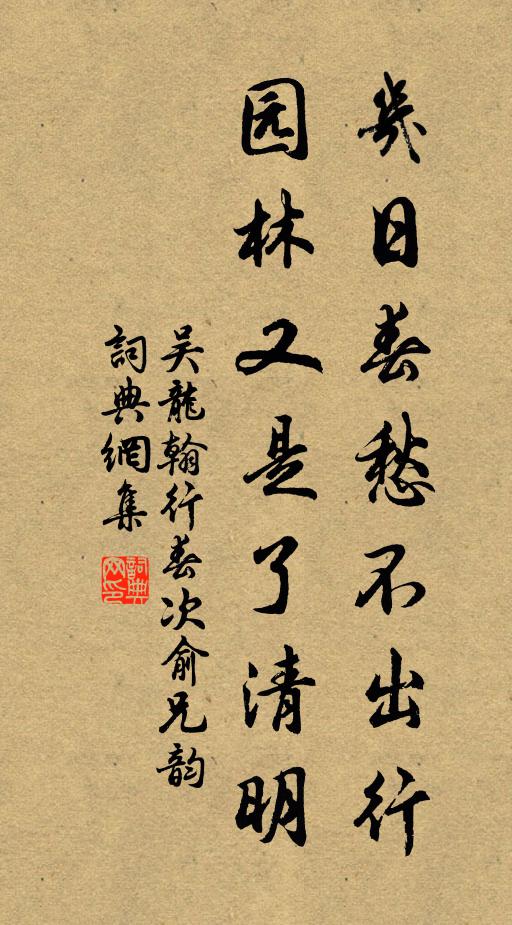 幾日春愁不出行
园林又是了清明
吴龍翰行春次俞兄韵
詞典網集
詞典网印